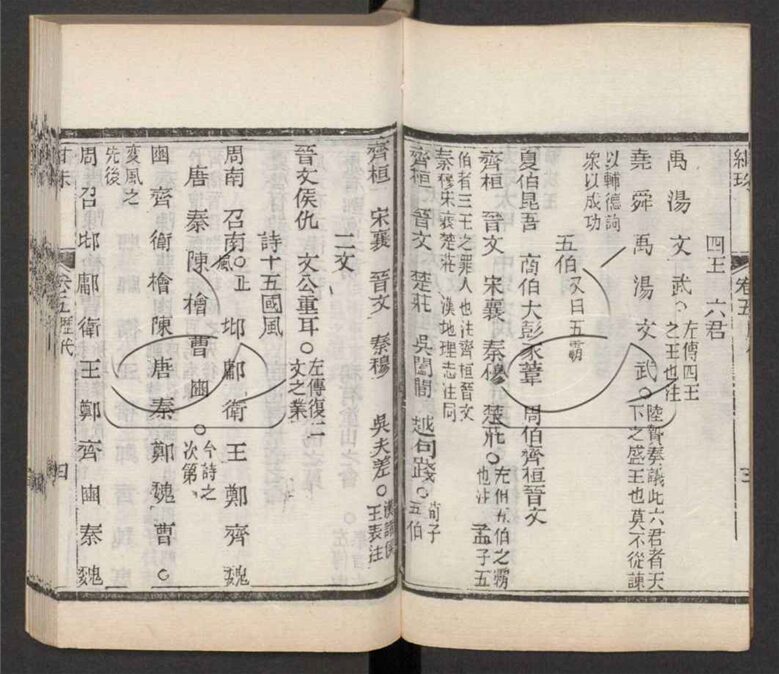 四王 六君
禹 湯 文 武○左傳四王
之王也注
堯 舜 禹 湯 文 武○陸贄奏議此六君者天
下之盛王也莫不從諫
以輔德詢
衆以成功
五伯又曰五霸
夏伯昆吾 商伯大彭豕韋 周伯齊桓晉文
齊桓 晉文 宋襄 秦穆 楚莊○
五伯之霸
也注 孟子五
伯者三王之罪人也注齊桓晉文
秦穆宋襄楚莊 漢地理志注同
齊桓 晉文 楚莊 吳闔閭 越句踐○荀子
五伯
齊桓 宋襄 晉文 秦穆 吳夫差○
王表注
二文
晉文侯仇 文公重耳○左傳復二
文之業
詩十五國風
周南 召南○正
風 邶鄘衛王鄭齊魏
唐秦陳檜曹豳○今詩之
次第
豳齊衛檜陳唐秦鄭魏曹○
變風之
先後
周召邶鄘衛王鄭齊豳秦魏
卷五歷代
四
卷五
三